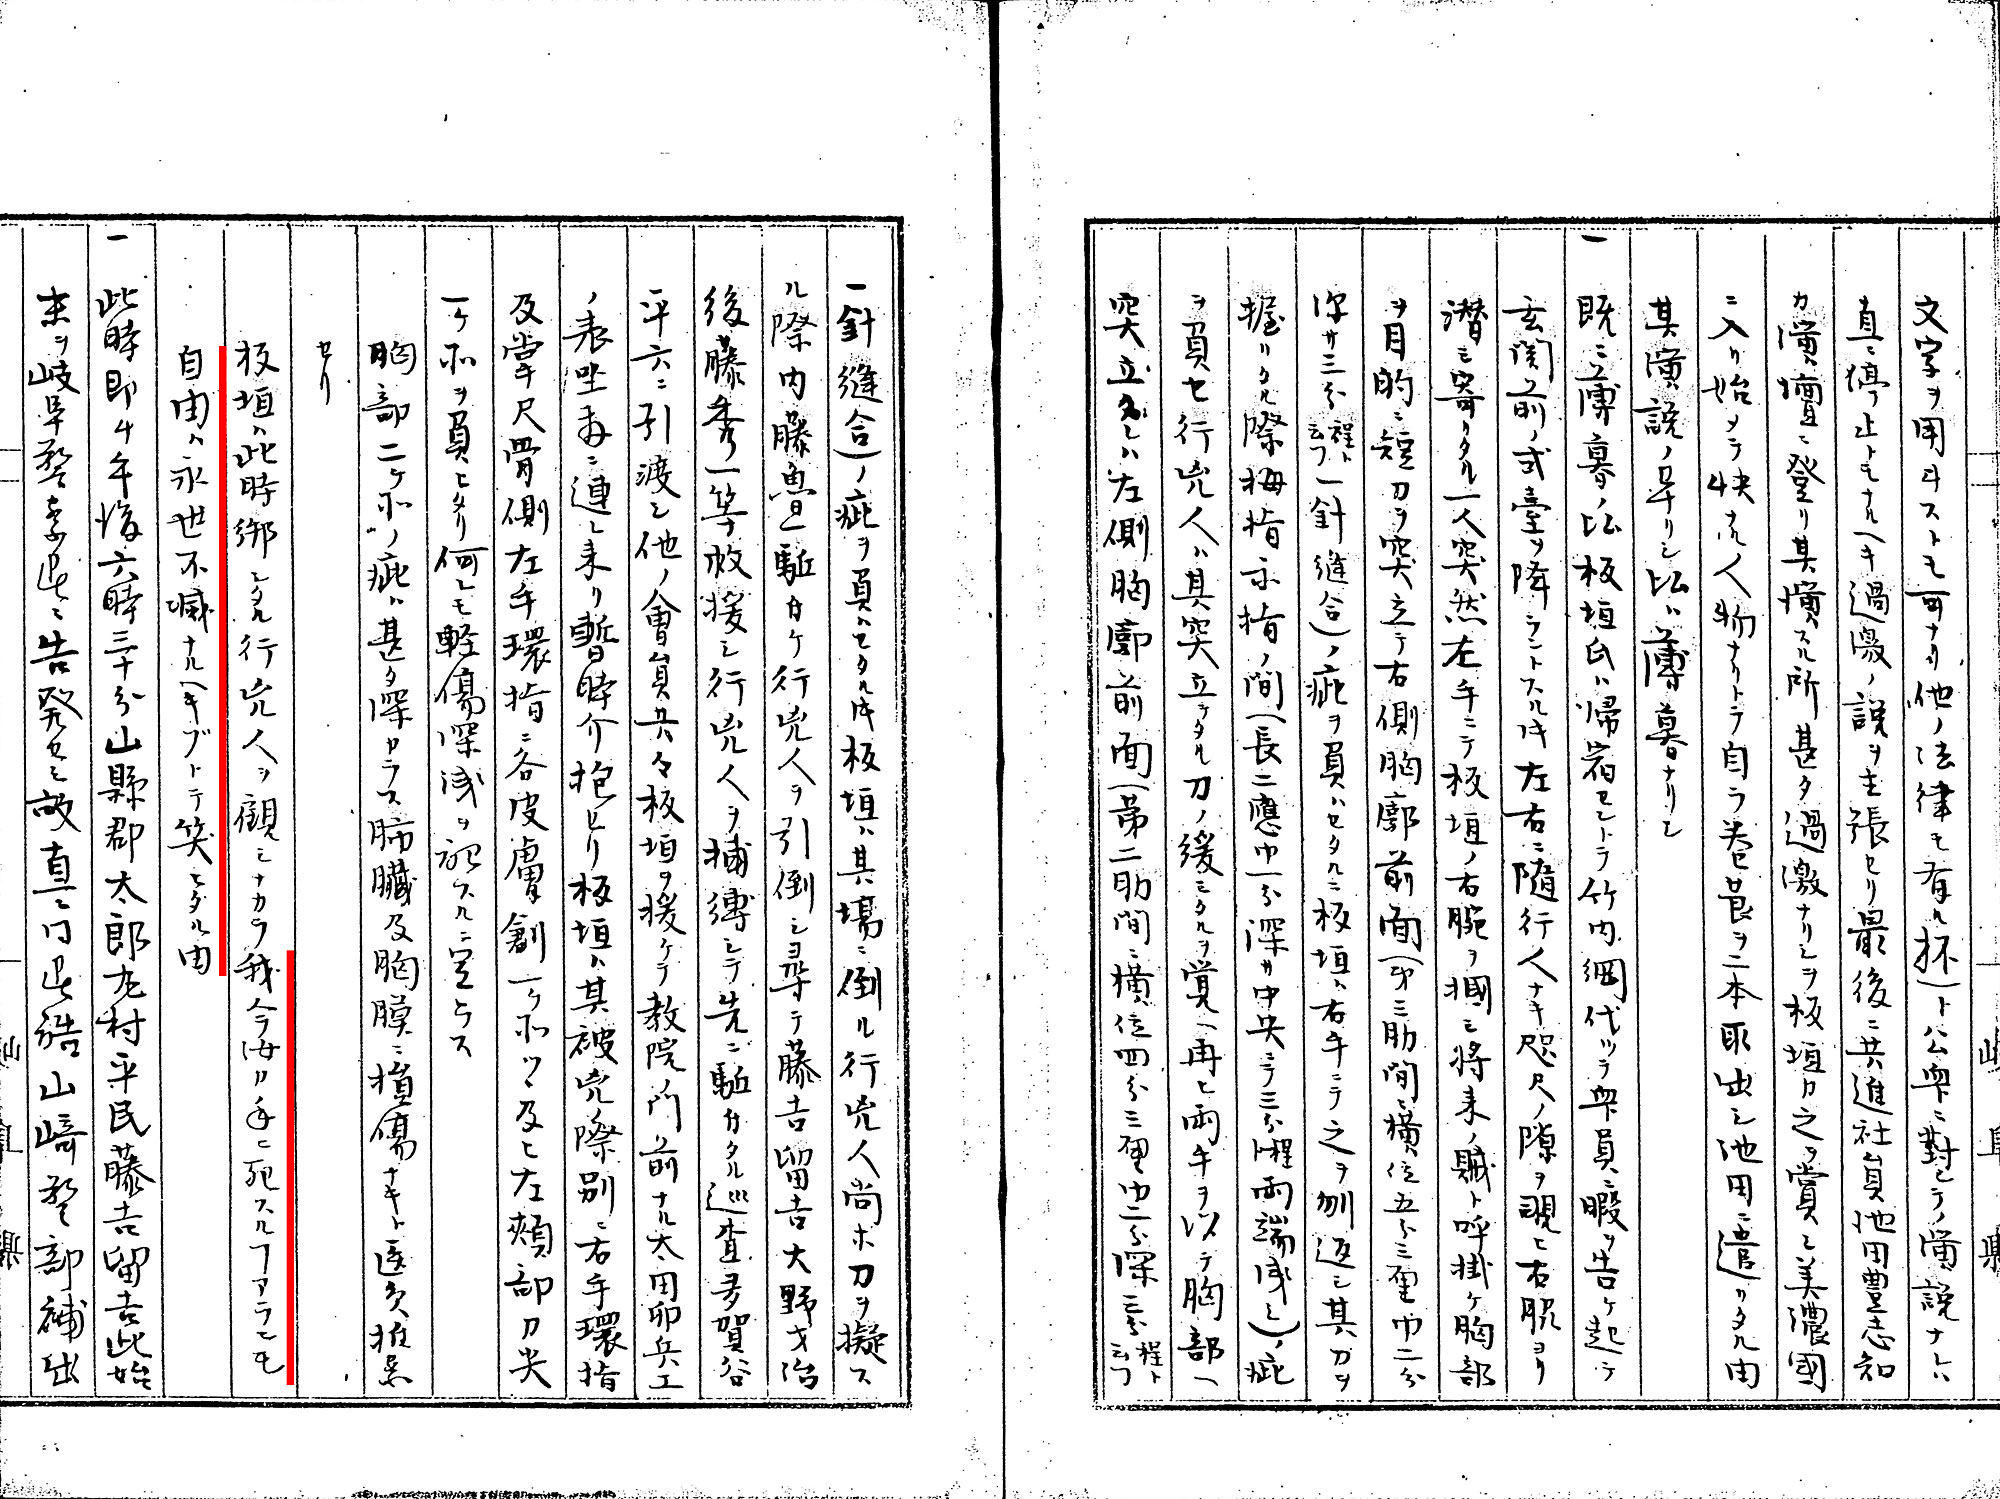 文字ヲ用ヰストモ可ナリ他ノ法律モ有ル抔)ト公衆ニ對シテノ演説ナレハ
直ニ停止トモナルヘキ過激ノ説ヲ主張セリ最後ニ共進社員池田豊志知
カ演壇ニ登リ其演スル所甚タ過激ナリシヲ板垣カ之ヲ賞シ美濃國
ニ入リ始メテ快キ人物ナリトテ自ラ巻莨ヲ二本取出シ池田ニ遣リタル由
其演説ノ早リシ比ハ薄暮ナリシ
一
既ニシテ薄暮ノ比板垣氏ハ帰宿セントテ竹内綱代ツテ衆員ニ暇ヲ告ケ起テ
玄関前ノ式臺ヲ降ラントスル片左右ニ随行人ナキ咫尺ノ隙ヲ覗ヒ右脇ヨリ
潜ミ寄リタル一人突然左手ニテ板垣ノ右腕ヲ摑ミ将来ノ賊ト呼掛ケ胸部
ヲ目的ニ短刀ヲ突立テ右側胸廓前面(第三肋間ニ横位五分三厘巾二分
深サ三分程ト云フ一針縫合)ノ疵ヲ負ハセタルニ板垣ハ右手ニテ之ヲ刎返シ其刀ヲ
握リタル際拇指示指ノ間(長二應巾一分深サ中央ニテ三分程両端浅シ)ノ疵
ヲ負セ行兇人ハ其突立テタル刀ノ緩ミタルヲ覚ヘ再ヒ両手ヲ以テ胸部ヘ
突立タレハ左側胸廓前面(第二肋間ニ横位四分三厘巾二分深三分程ト云フ
一針縫合)ノ疵ヲ負ハセタル片板垣ハ其場ニ倒ル行兇人尚ホ刀ヲ擬ス
ル際内藤魯一駈付ケ行兇人ヲ引倒シ尋テ藤吉留吉大野才治
後藤秀一等救援シ行兇人ヲ捕縛シテ先ニ駈付タル巡査多賀谷
平六ニ引渡シ他ノ會員共々板垣ヲ援ケテ教院ノ門前ナル太田卯兵エ
ノ表坐敷ニ連レ来リ暫時介抱セリ板垣ハ其被兇際別ニ右手環指
及掌尺骨側左手環指ニ各皮膚創一ケ所ツヽ及ヒ左頬部刀尖
一ケ所ヲ負ヒタリ何レモ軽傷深浅ヲ記スルニ至ラス
胸部二ケ所ノ疵ハ甚タ深カラス肺臓及胸膜ニ損傷ナキト医員推案
セリ
板垣ハ此時縛シタル行兇人ヲ顧ミナカラ我今汝カ手ニ死スルコアラモ
自由ハ永世不滅ナルヘキゾトテ笑ヒタル由
一
此時即チ午後六時三十分山縣郡太郎丸村平民藤吉留吉此始
末ヲ岐阜警察署ニ告発セシ故直ニ同署詰山﨑警部補出
岐阜縣